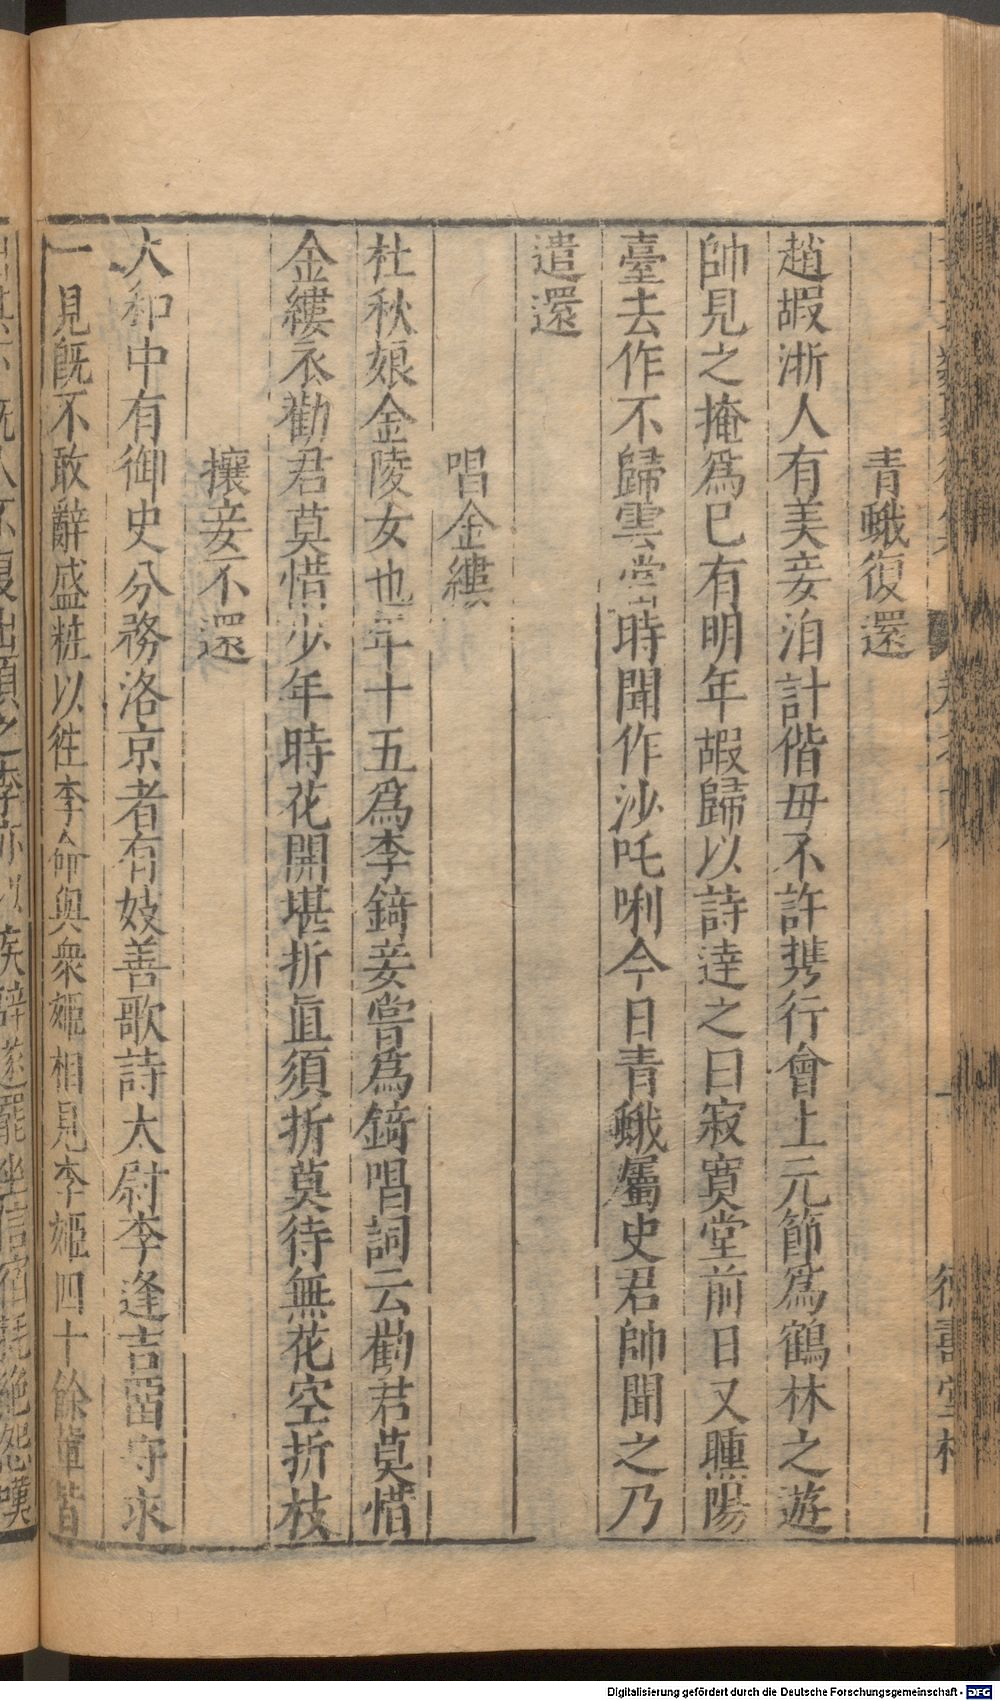 青蛾復還
趙嘏浙人有美妾洎計偕毋不許携行會上元節爲鶴林之遊
帥見之掩爲已有明年嘏歸以詩逹之曰寂寞堂前日又曛陽
臺去作不歸雲當時聞作沙吒唎今日青蛾屬史君帥聞之乃
遣還
唱金縷
杜秋娘金陵女也年十五爲李錡妾嘗爲錡唱詞云勸君莫惜
金縷衣勸君莫惜少年時花開堪折直須折莫待無花空折枝
攘妾不還
大和中有御史分務洛京者有妓善歌詩太尉李逢吉畱守求
一見旣不敢辭盛粧以徃李命與衆姬相見李姬四十餘輩皆
出其下旣入不復出頃之李亦以疾辭遂罷坐信宿耗絶怨嘆
Digitalisierung gefördert durch die Deutsche Forschungsgemeinschaft - DFG